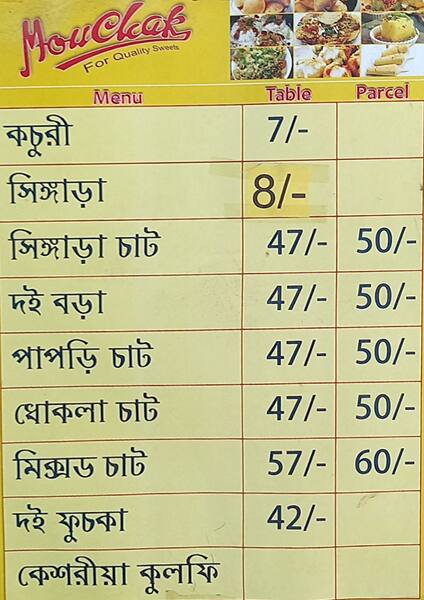 Mouchak
For Quality Sweets
Menu Table Parcel
কচুরী 7/-
সিঙ্গাড়া 8/-
সিঙ্গাড়া চাট 47/- 50/-
দই বড়া 47/- 50/-
পাপড়ি চাট 47/- 50/-
ধোকলা চাট 47/- 50/-
মিক্সড চাট 57/- 60/-
দই ফুচকা 42/-
কেশরীয়া কুলফি